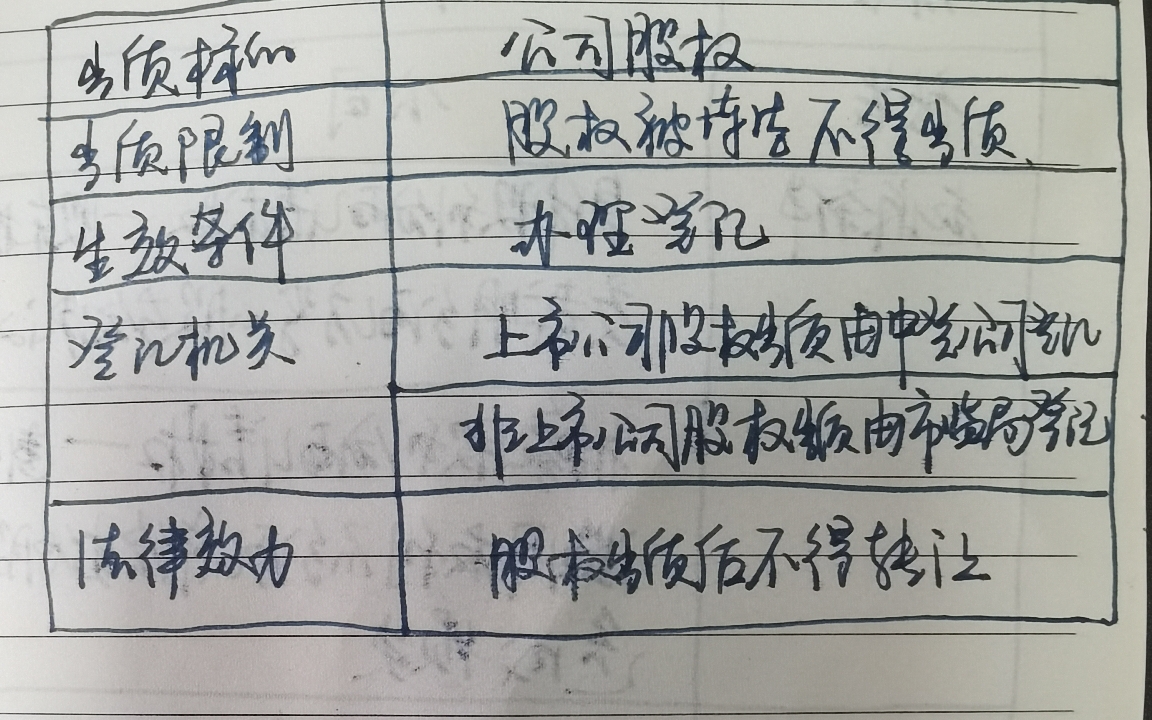 出质标的 公司股权
出质限制 股权被冻结不得出质、
生效条件 办理登记
登记机关 上市公司股权出质由中登公司登记
非上市公司股权出质由市监局登记
法律效力 股权出质后不得转让